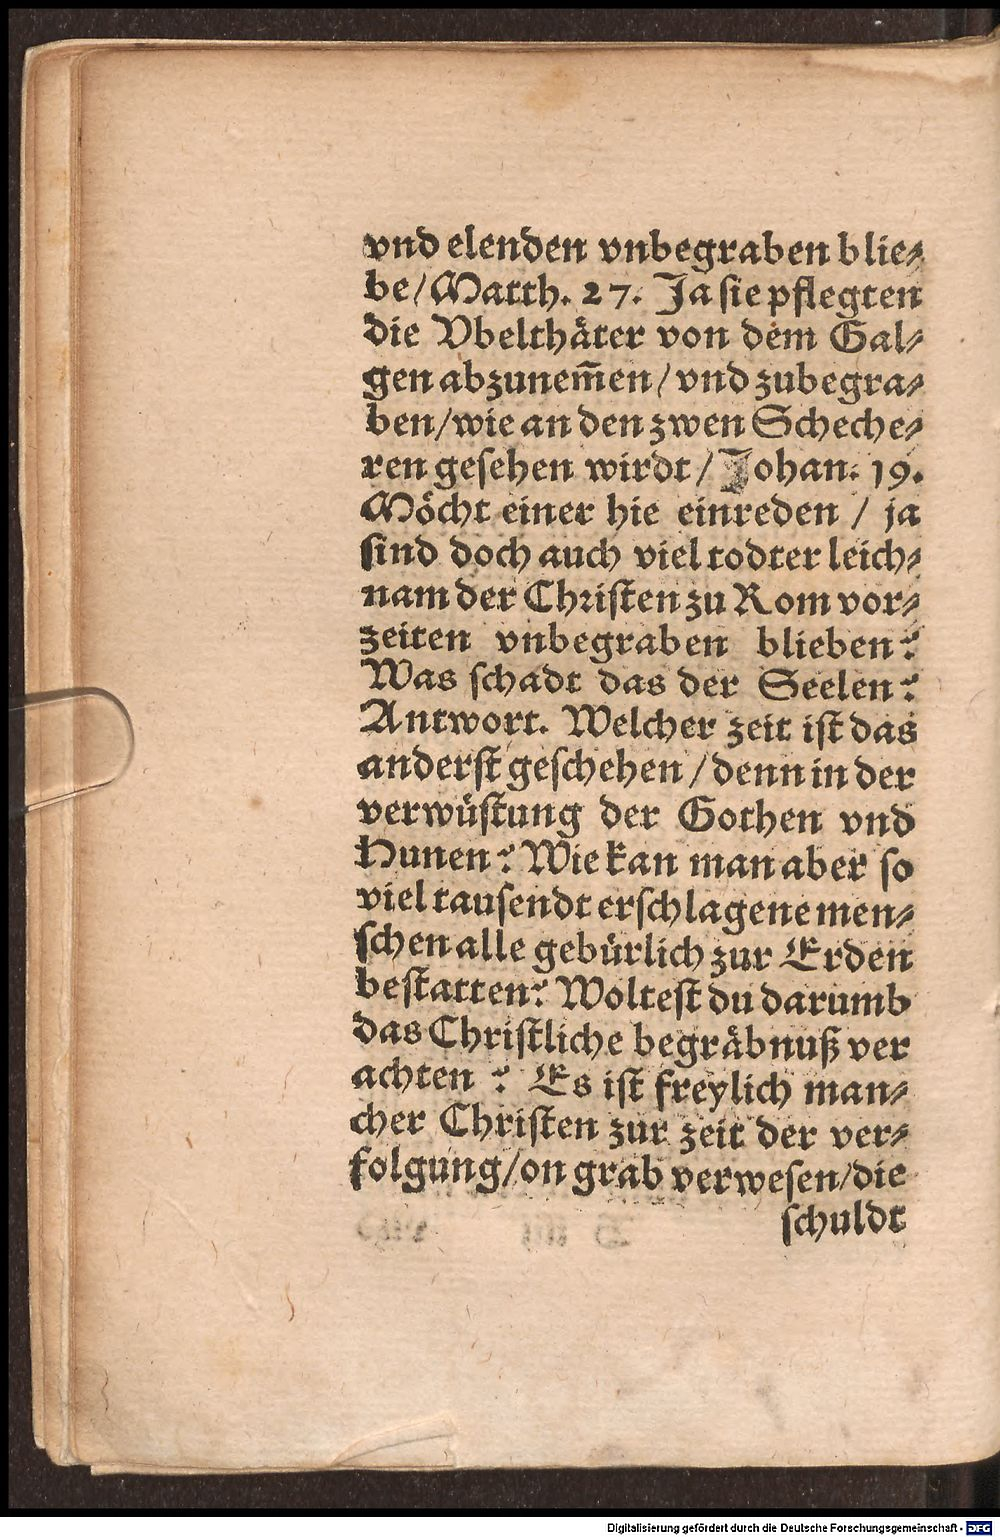 vnd elenden vnbegraben blie⸗
be/Matth. 27. Ja sie pflegten
die Vbelthäter von dem Gal⸗
gen abzunem̃en/vnd zubegra⸗
ben/wie an den zwen Scheche⸗
ren gesehen wirdt/Johan. 19.
Möcht einer hie einreden / ja
sind doch auch viel todter leich⸗
nam der Christen zu Rom vor⸗
zeiten vnbegraben blieben?
Was schadt das der Seelen?
Antwort. Welcher zeit ist das
anderst geschehen/denn in der
verwüstung der Gothen vnd
Hunen? Wie kan man aber so
viel tausendt erschlagene men⸗
schen alle gebürlich zur Erden
bestatten? Woltest du darumb
das Christliche begräbnuß ver
achten ? Es ist freylich man⸗
cher Christen zur zeit der ver⸗
folgung/on grab verwesen/die
schuldt
Digitalisierung gefördert durch die Deutsche Forschungsgemeinschaft - DFG